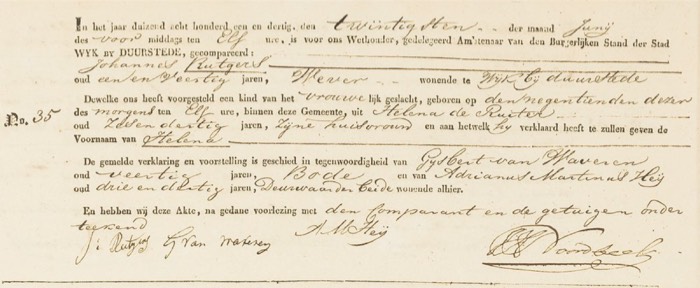 In het jaar duizend acht honderd, een en dertig, den twintigsten der maand Junij
des voor middags ten Elf ure, is voor ons Wethouder, gedelegeerd Ambtenaar van den Burgerlijken Stand der Stad
WYK BY DUURSTEDE, gecompareerd:
Johannes Rutgers
oud een en Veertig jaren, Wever wonende te Wijk bij duurstede
Dewelke ons heeft voorgesteld een kind van het vrouwelijk geslacht, geboren op den negentienden dezer
No. 35
des morgens ten Elf ure, binnen deze Gemeente, uit Helena de Ruiter
oud Zeven dertig jaren, Zijne huisvrouw en aan hetwelk hij verklaard heeft te zullen geven de
Voornaam van Helena
De gemelde verklaring en voorstelling is geschied in tegenwoordigheid van Gijsbert van Waveren
oud veertig jaren, Bode en van Adrianus Martinus Heij
oud drie en dertig jaren, Deurwaarder beide wonende alhier.
En hebben wij deze Akte, na gedane voorlezing met den Comparant en de getuigen onder
teekend
J: Rutgers G Van waveren A M Heij